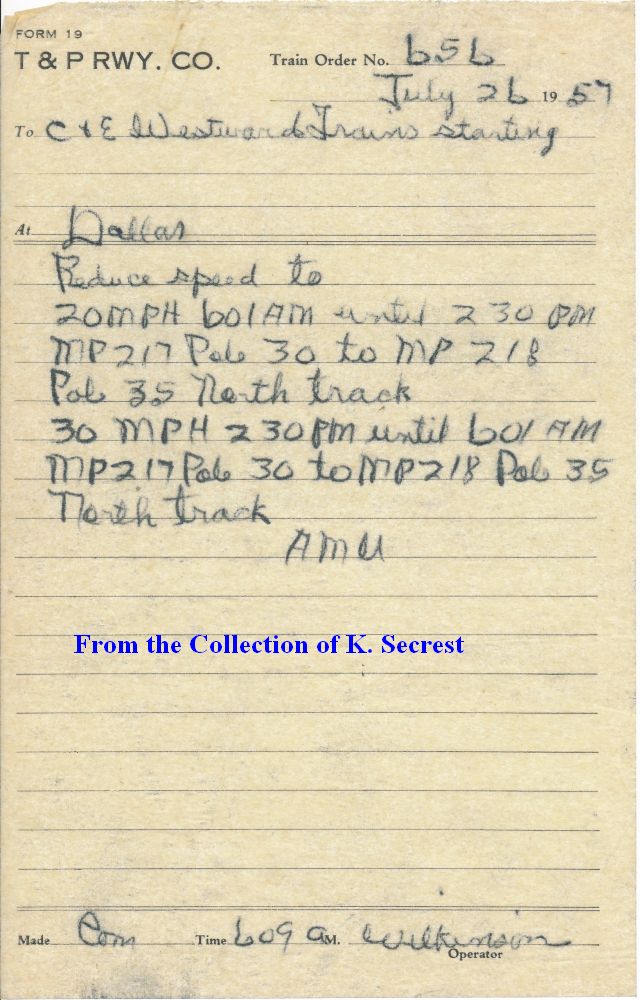 FORM 19
T & P RWY. CO.
Train Order No. 656
July 26 1957
To C & E Westward Trains starting
At Dallas
Reduce speed to
20 MPH 601 AM until 2 30 PM
MP 217 Pole 30 to MP 218
Pole 35 North track
30 MPH 2 30 PM until 601 AM
MP 217 Pole 30 to MP 218 Pole 35
North track
AMU
From the Collection of K. Secrest
Made Com Time 609 a M. Wilkinson
Operator